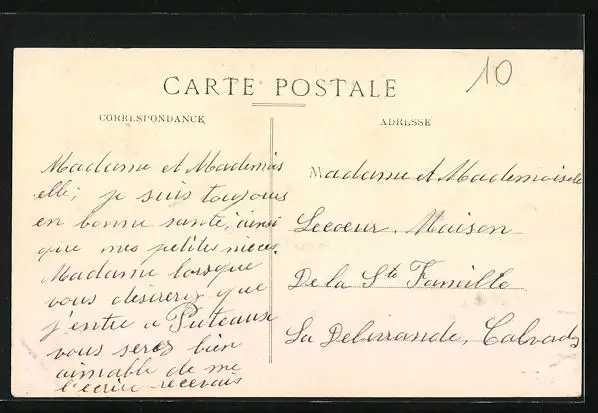 10
CARTE POSTALE
CORRESPONDANCE
ADRESSE
Madame et Mademois
elle, je suis toujours
en bonne santé, ainsi
que mes petites nièces.
Madame lorsque
vous désirerez que
j'entre a Puteaux
vous serez bien
aimable de me
l'ecrire recevais
Madame et Mademoiselle
Lecoeur. Maison
De la Ste Famille
La Delivrande, Calvados